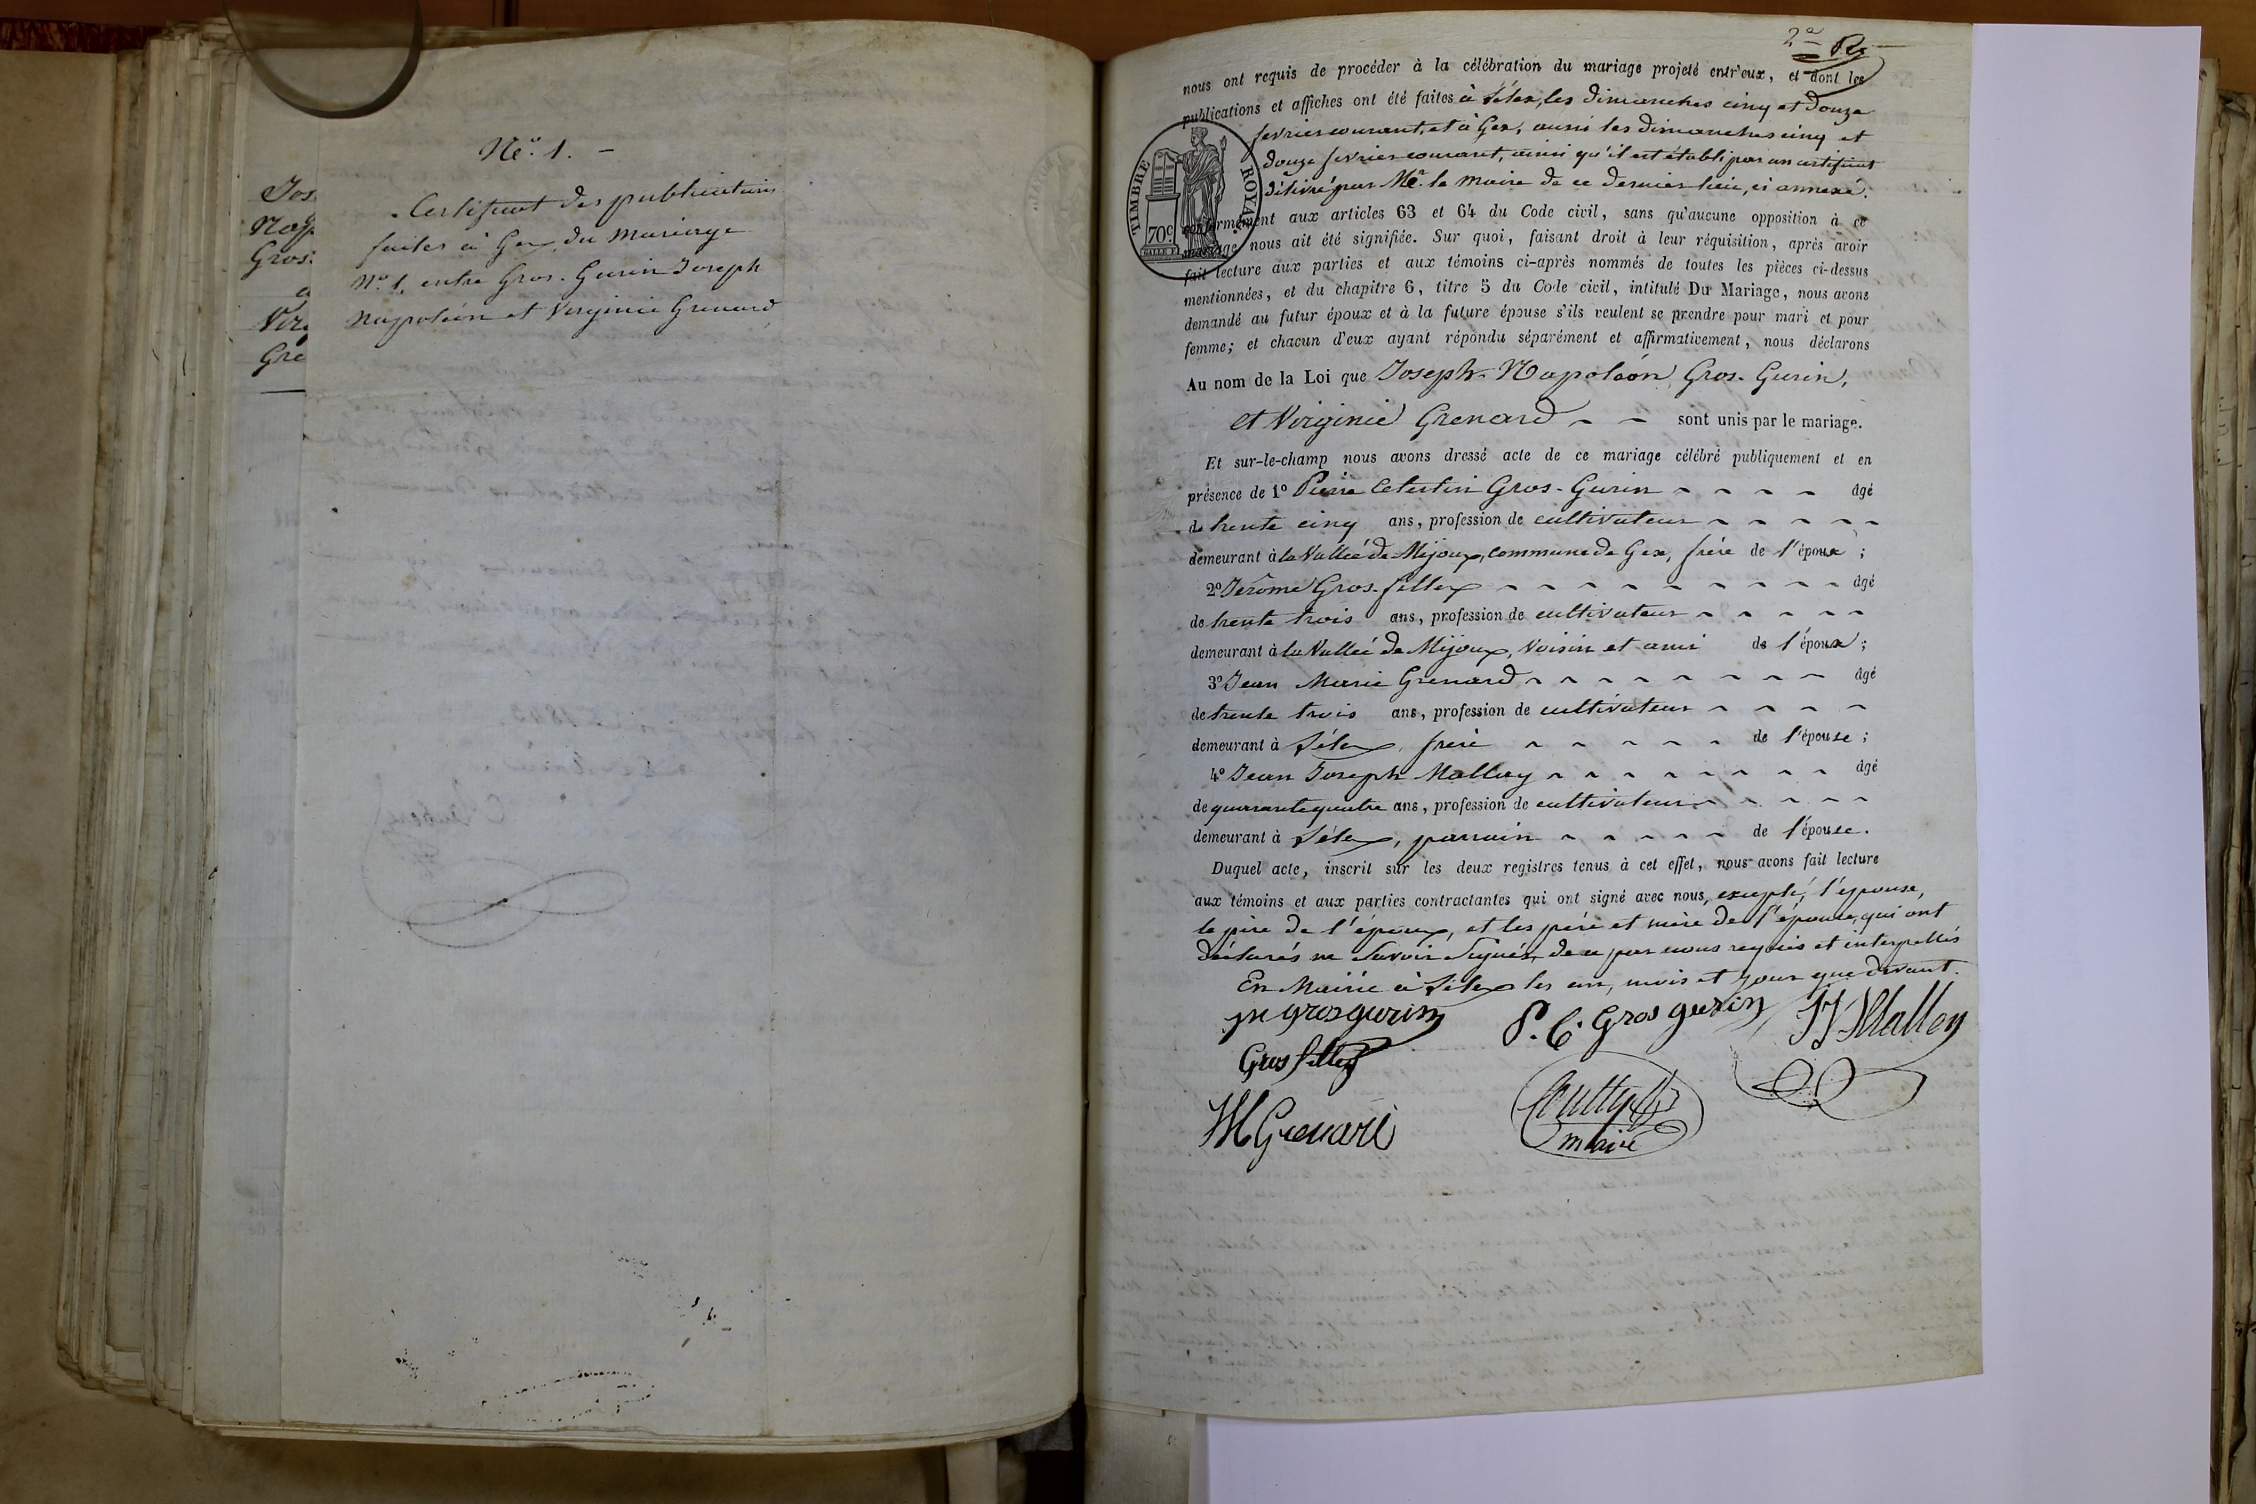 No. 1. -
Certificat des publications
faites à Gex, du Mariage
No. 1, entre Gros-Gurin Joseph
Napoléon et Virginie Grenard
Jos
Nap
Gros
Virg
Gre
2e
nous ont requis de procéder à la célébration du mariage projeté entr'eux, et dont les
publications et affiches ont été faites à Lélex, les dimanches cinq et douze
fevrier courant, et à Gex, aussi les dimanches cinq et
douze fevrier courant, ainsi qu'il est établi par un certificat
délivré par Mr. le Maire de ce dernier lieu, ci annexé.
TIMBRE ROYAL
70c
conformément aux articles 63 et 64 du Code civil, sans qu'aucune opposition à ce
mariage nous ait été signifiée. Sur quoi, faisant droit à leur réquisition, après avoir
fait lecture aux parties et aux témoins ci-après nommés de toutes les pièces ci-dessus
mentionnées, et du chapitre 6, titre 5 du Code civil, intitulé Du Mariage, nous avons
demandé au futur époux et à la future épouse s'ils veulent se prendre pour mari et pour
femme; et chacun d'eux ayant répondu séparément et affirmativement, nous déclarons
Au nom de la Loi que Joseph-Napoléon Gros-Gurin,
et Virginie Grenard sont unis par le mariage.
Et sur-le-champ nous avons dressé acte de ce mariage célébré publiquement et en
présence de 1o Pierre Celestin Gros-Gurin âgé
de trente cinq ans, profession de cultivateur
demeurant à la Vallée de Mijoux, commune de Gex, frère de l'époux;
2o Jérôme Gros-fillex âgé
de trente trois ans, profession de cultivateur
demeurant à la Vallée de Mijoux, Voisin et ami de l'époux;
3o Jean Marie Grenard âgé
de trente trois ans, profession de cultivateur
demeurant à Lélex, frère de l'épouse;
4o Jean Joseph Mallay âgé
de quarante quatre ans, profession de cultivateur
demeurant à Lélex, parrain de l'épouse.
Duquel acte, inscrit sur les deux registres tenus à cet effet, nous avons fait lecture
aux témoins et aux parties contractantes qui ont signé avec nous, excepté, l'épouse,
le père de l'époux, et les père et mère de l'épouse, qui ont
déclarés ne Savoir Signer, de ce par nous requis et interpellés
En Mairie à Lélex les an, mois et jour que devant.
jn grosgurin P. C. Gros gurin JJ Mallay
Gros fillex
JM Grenard
maire